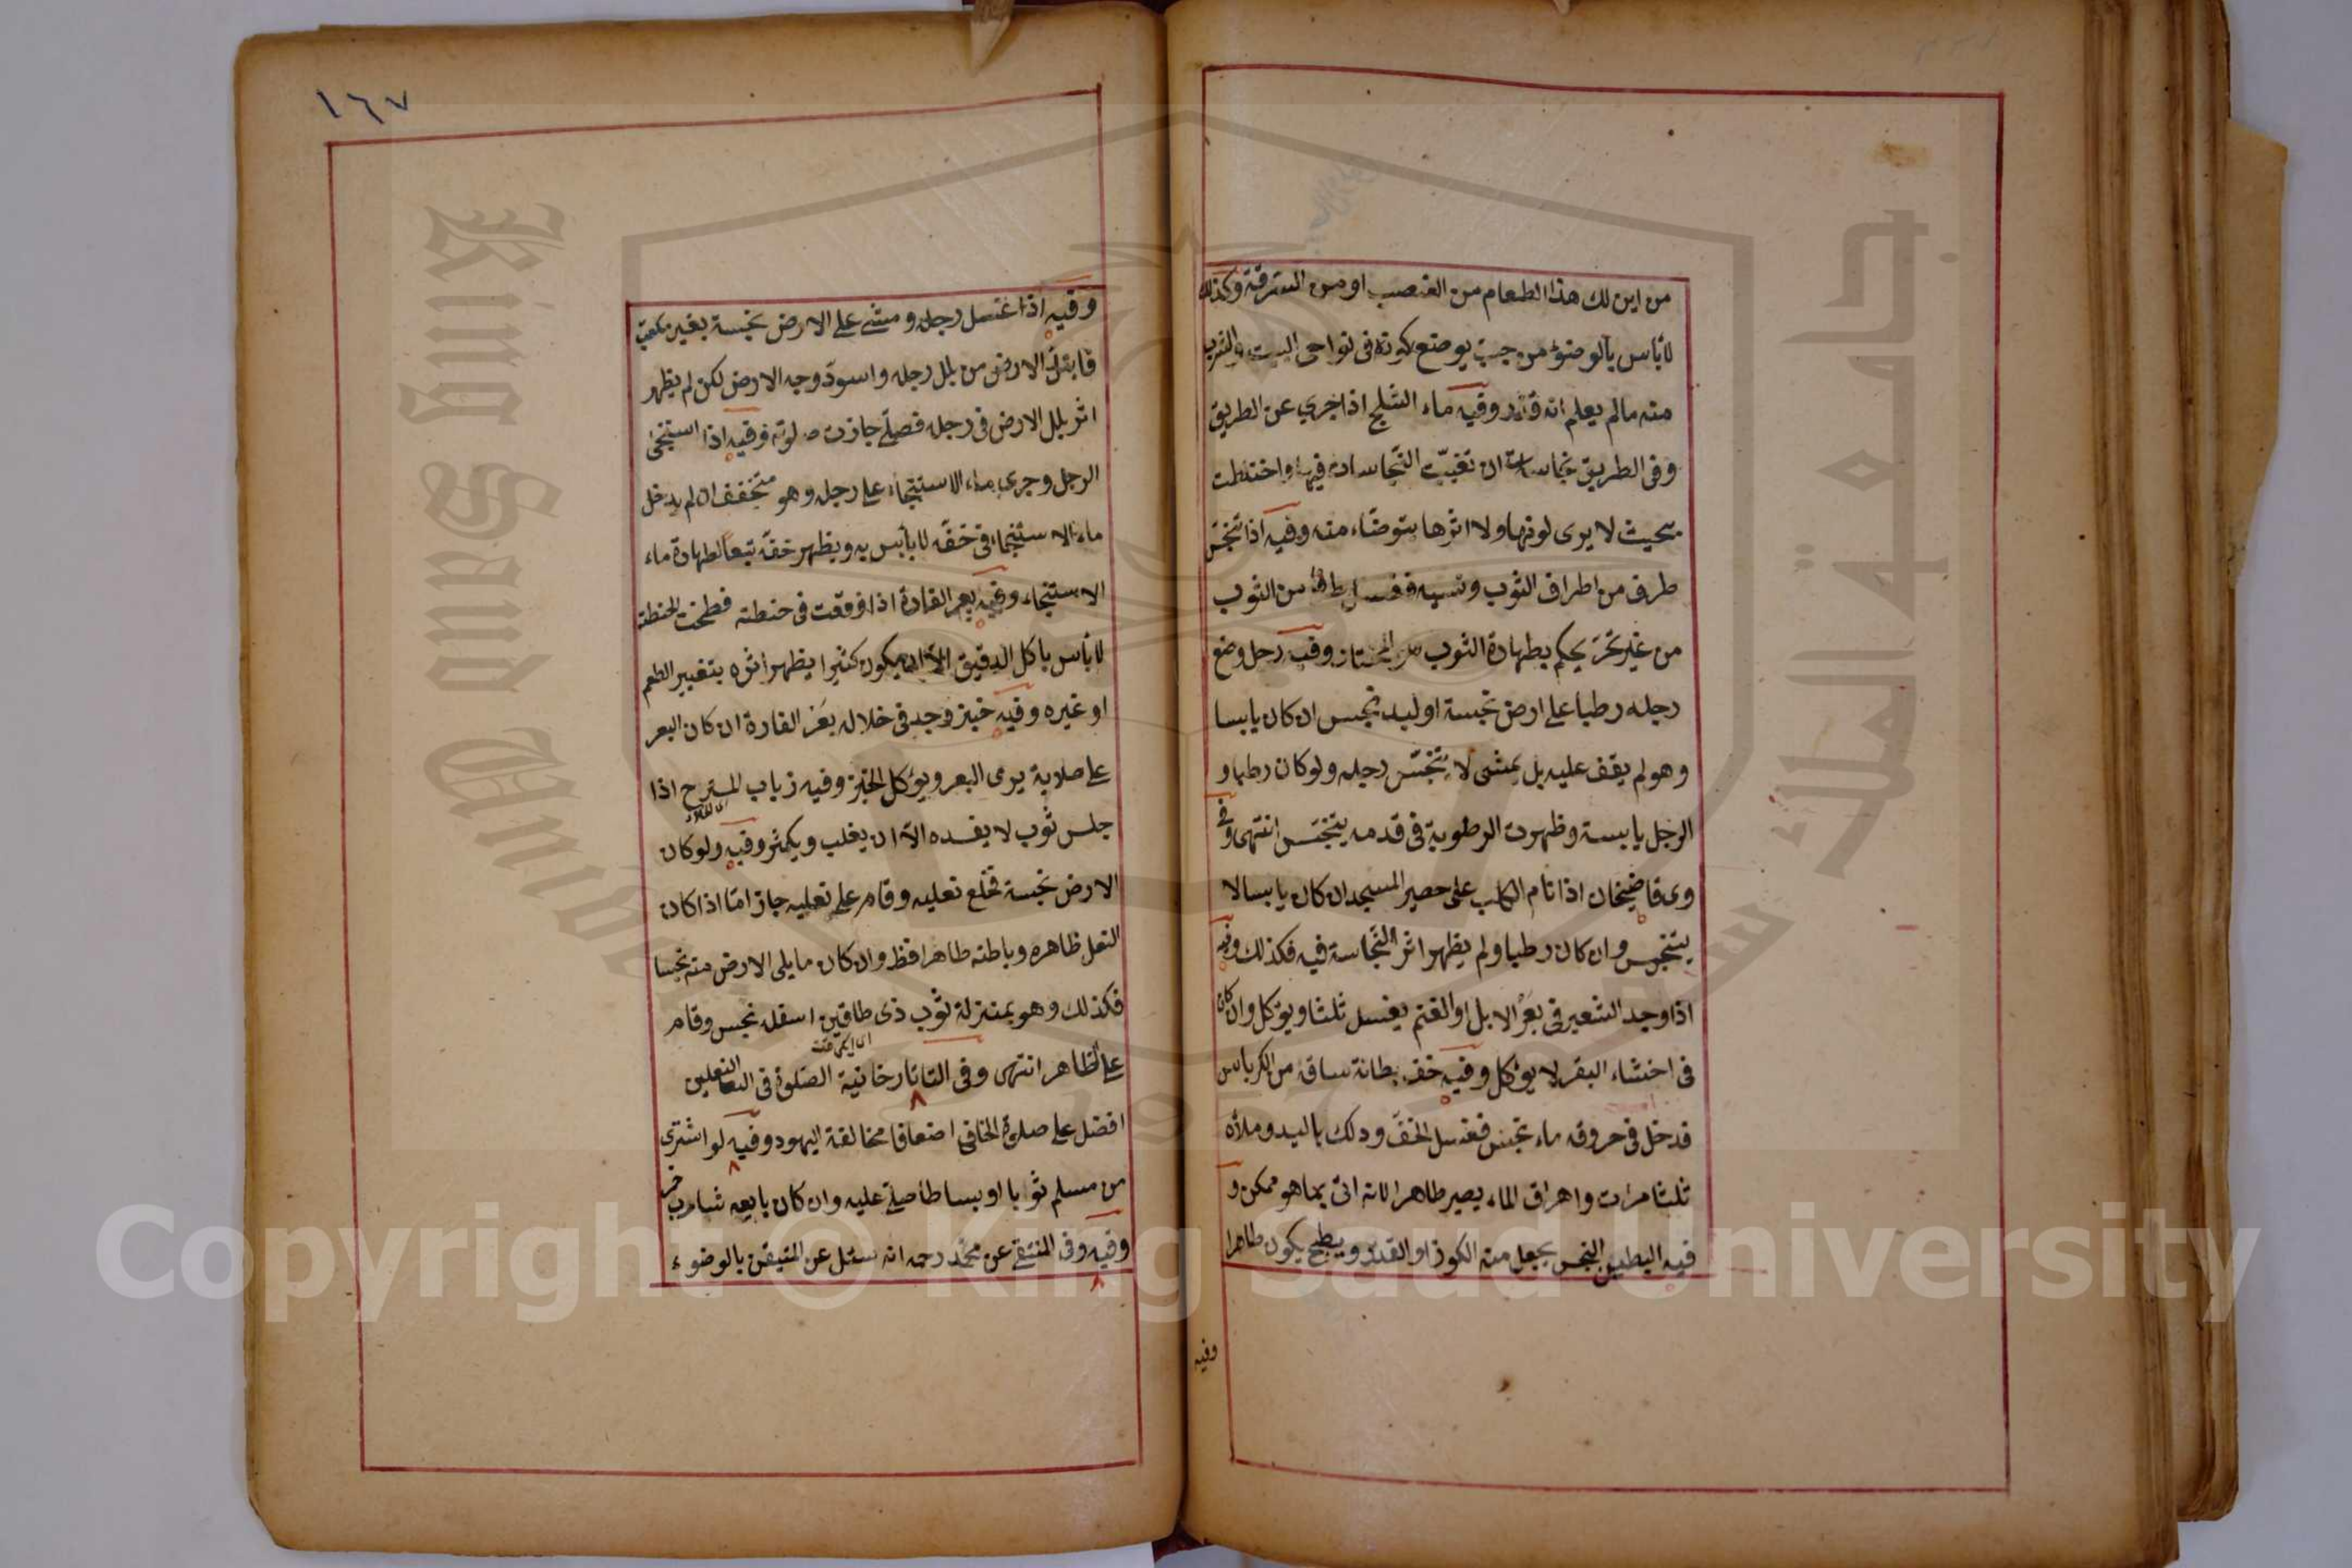 من اين لك هذا الطعام من الغصب او من السرقة وكذلك
لابأس بالوضوء من جب يوضع كوزه فى نواحى البيت والشرب
منه مالم يعلم انه قذر وفيه ماء الثلج اذا جرى عن الطريق
وفى الطريق نجاسات ان تغيبت النجاسات فيها واختلطت
بحيث لا يرى لونها ولا اثرها يتوضاء منه وفيه اذا تنجس
طرف من اطراف الثوب ونسيه فغسل طرفا من الثوب
من غير تحر يحكم بطهارة الثوب هو المختار وفيه رجل وضع
رجله رطبا على ارض نجسة او لبد نجس ان كان يابسا
وهو لم يقف عليه بل يمشى لا تتنجس رجله ولو كان رطبا و
الرجل يابسة وظهرت الرطوبة فى قدمه يتنجس انتهى وفى
وى قاضيخان اذا نام الكلب على حصير المسجد ان كان يابسا لا
يتنجس وان كان رطبا ولم يظهر اثر النجاسة فيه فكذلك وفيه
اذا وجد الشعير فى بعر الابل او الغنم يغسل ثلثا ويؤكل وان كان
فى اخثاء البقر لا يؤكل وفيه خف بطانة ساقه من الكرباس
فدخل فى خروقه ماء نجس فغسل الخف ودلك باليد وملأه
ثلثا مرات واهراق الماء يصير طاهرا لانه اتى بما هو ممكن و
فيه الطين النجس يجعل منه الكوز او القدر ويطبخ يكون طاهرا
وفيه
١٦٧
وفيه اذا غسل رجله ومشى على الارض نجسة بغير مكعب
فابتل الارض من بلل رجله واسود وجه الارض لكن لم يظهر
اثر بلل الارض فى رجله فصلى جازت صلوته وفيه اذا استنجى
الرجل وجرى ماء الاستنجاء على رجله وهو متخفف ان لم يدخل
ماء الاستنجاء فى خفه لابأس به ويظهر خفه تبعا لطهارة ماء
الاستنجاء وفيه بعر الفارة اذا وقعت فى حنطته فطحنت الحنطة
لابأس باكل الدقيق الا ان يكون كثيرا يظهر اثره بتغيير الطعم
او غيره وفيه خبز وجد فى خلاله بعر الفارة ان كان البعر
على صلابة يرمى البعر ويؤكل الخبز وفيه ذباب المسترح اذا
جلس ثوب لا يفسده الا ان يغلب ويكثر وفيه ولو كان
الارض نجسة فخلع نعليه وقام على نعليه جاز امّا اذا كان
النعل ظاهره وباطنه طاهرا فظ وان كان مايلى الارض منه نجسا
فكذلك وهو بمنزلة ثوب ذى طاقين اسفله نجس وقام
على الظاهر انتهى وفى التاتارخانية الصلوة فى النعلين
افضل على صلوة الحافى اضعافا مخالفة اليهود وفيه لو اشترى
من مسلم ثوبا او بساطا صلى عليه وان كان بايعه شارب خمر
وفيه وفى المنتقى عن محمد رحمه انه سئل عن المتيقن بالوضوء
King Saud University
جامعة الملك سعود
1957
Copyright © King Saud University